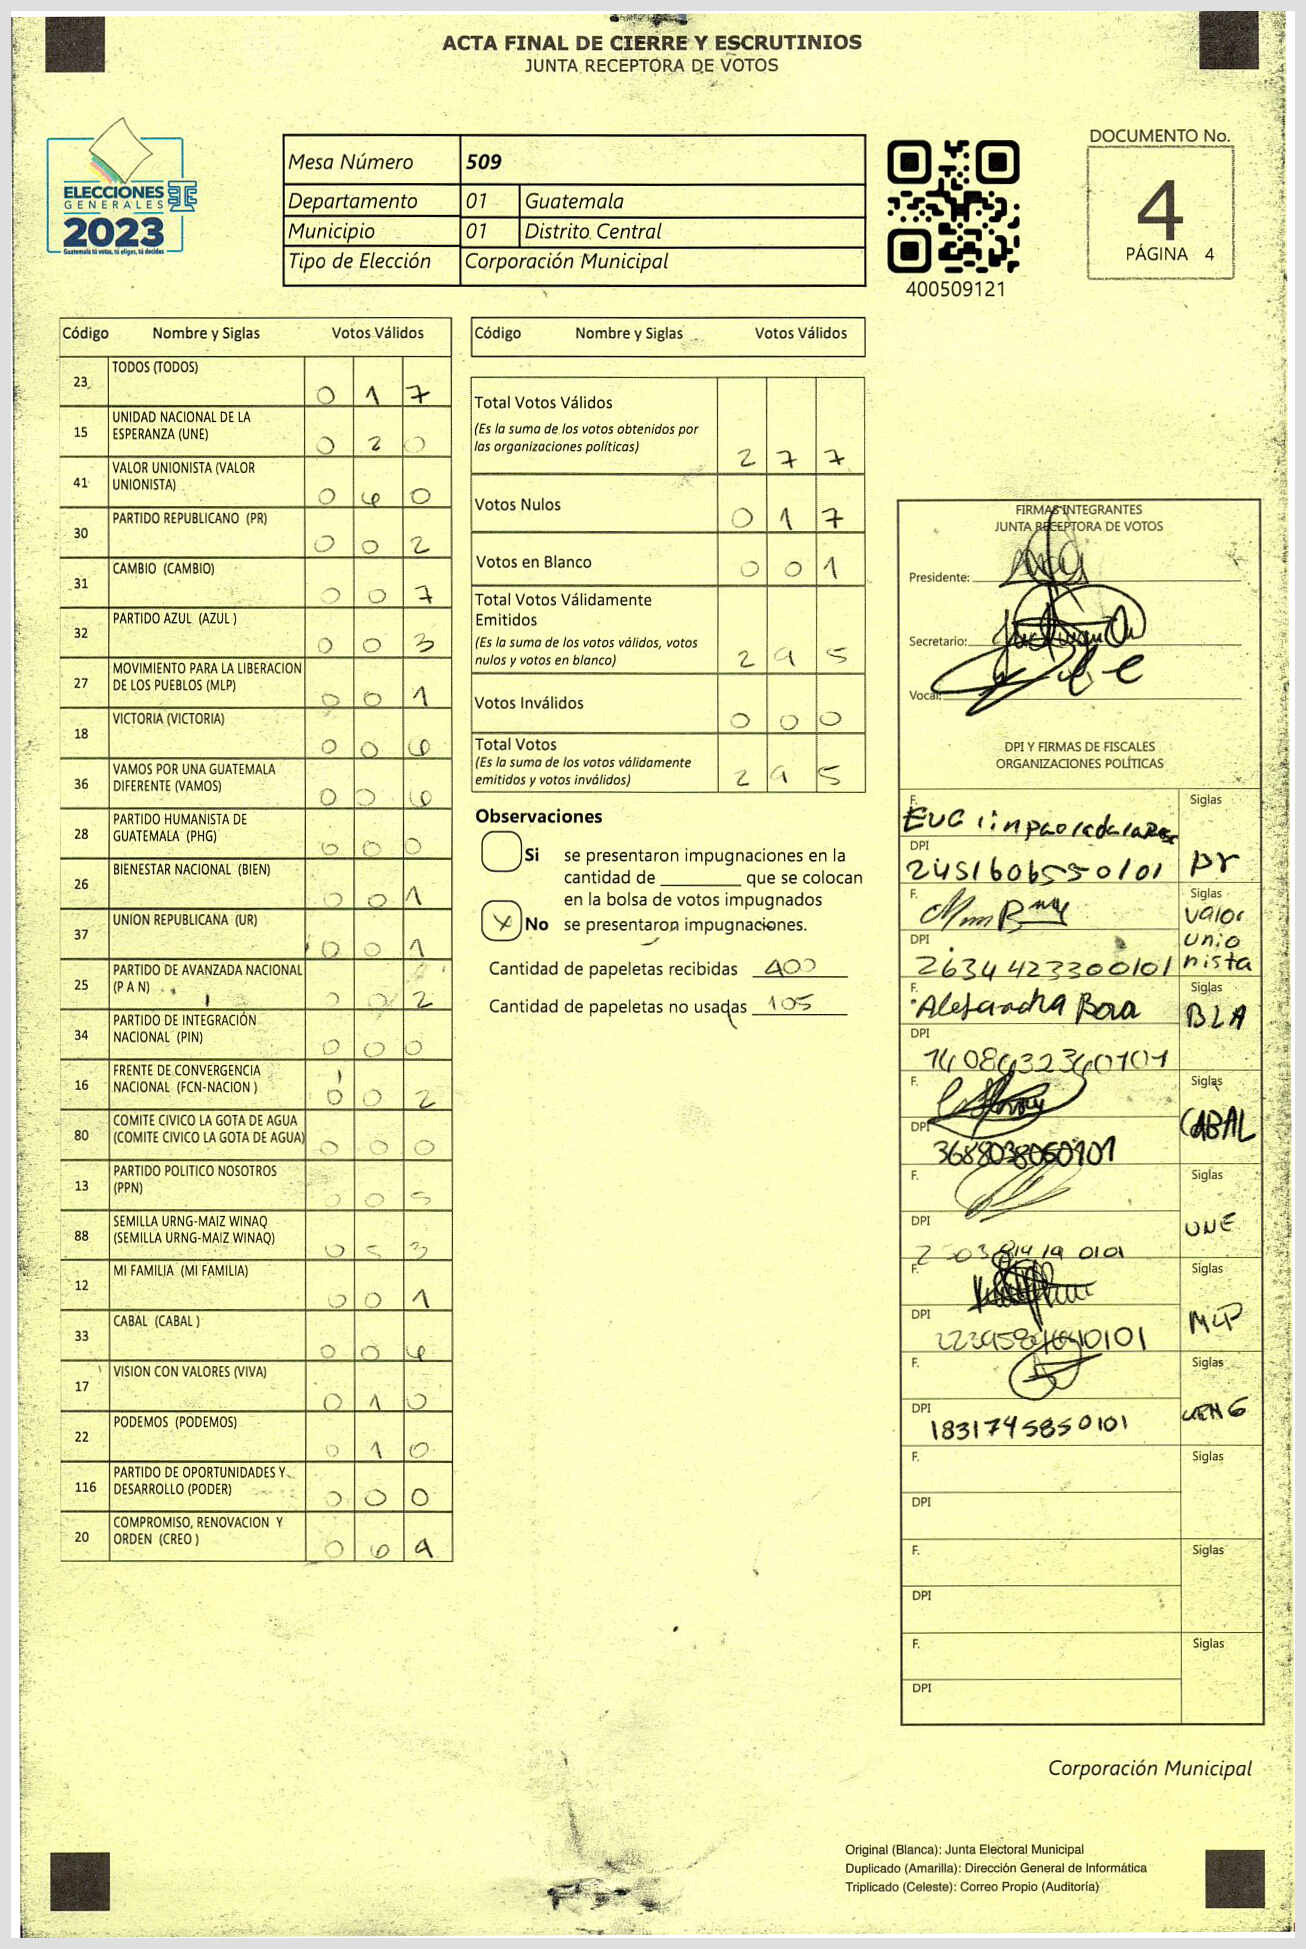 ACTA FINAL DE CIERRE Y ESCRUTINIOS
JUNTA RECEPTORA DE VOTOS
ELECCIONES
GENERALES
2023
Guatemala tú votas, tú eliges, tú decides
Mesa Número 509
Departamento 01 Guatemala
Municipio 01 Distrito Central
Tipo de Elección Corporación Municipal
400509121
DOCUMENTO No.
4
PÁGINA 4
Código Nombre y Siglas Votos Válidos
23 TODOS (TODOS) 0 1 7
15 UNIDAD NACIONAL DE LA
ESPERANZA (UNE) 0 2 0
41 VALOR UNIONISTA (VALOR
UNIONISTA) 0 6 0
30 PARTIDO REPUBLICANO (PR) 0 0 2
31 CAMBIO (CAMBIO) 0 0 7
32 PARTIDO AZUL (AZUL ) 0 0 3
27 MOVIMIENTO PARA LA LIBERACION
DE LOS PUEBLOS (MLP) 0 0 1
18 VICTORIA (VICTORIA) 0 0 6
36 VAMOS POR UNA GUATEMALA
DIFERENTE (VAMOS) 0 0 6
28 PARTIDO HUMANISTA DE
GUATEMALA (PHG) 0 0 0
26 BIENESTAR NACIONAL (BIEN) 0 0 1
37 UNION REPUBLICANA (UR) 0 0 1
25 PARTIDO DE AVANZADA NACIONAL
(P A N) 0 0 2
34 PARTIDO DE INTEGRACIÓN
NACIONAL (PIN) 0 0 0
16 FRENTE DE CONVERGENCIA
NACIONAL (FCN-NACION ) 0 0 2
80 COMITE CIVICO LA GOTA DE AGUA
(COMITE CIVICO LA GOTA DE AGUA) 0 0 0
13 PARTIDO POLITICO NOSOTROS
(PPN) 0 0 5
88 SEMILLA URNG-MAIZ WINAQ
(SEMILLA URNG-MAIZ WINAQ) 0 5 3
12 MI FAMILIA (MI FAMILIA) 0 0 1
33 CABAL (CABAL ) 0 0 6
17 VISION CON VALORES (VIVA) 0 1 0
22 PODEMOS (PODEMOS) 0 1 0
116 PARTIDO DE OPORTUNIDADES Y
DESARROLLO (PODER) 0 0 0
20 COMPROMISO, RENOVACION Y
ORDEN (CREO ) 0 6 4
Código Nombre y Siglas Votos Válidos
Total Votos Válidos
(Es la suma de los votos obtenidos por
las organizaciones políticas) 2 7 7
Votos Nulos 0 1 7
Votos en Blanco 0 0 1
Total Votos Válidamente
Emitidos
(Es la suma de los votos válidos, votos
nulos y votos en blanco) 2 9 5
Votos Inválidos 0 0 0
Total Votos
(Es la suma de los votos válidamente
emitidos y votos inválidos) 2 9 5
Observaciones
Si se presentaron impugnaciones en la
cantidad de ________ que se colocan
en la bolsa de votos impugnados
X No se presentaron impugnaciones.
Cantidad de papeletas recibidas 400
Cantidad de papeletas no usadas 105
FIRMAS INTEGRANTES
JUNTA RECEPTORA DE VOTOS
Presidente:
Secretario:
Vocal:
DPI Y FIRMAS DE FISCALES
ORGANIZACIONES POLÍTICAS
F. Siglas
DPI 2451606550101 pr
F. Siglas
valor
unio
nista
DPI 2634423300101
F. Alejandra Siglas
BLA
DPI
F. Siglas
CABAL
DPI 3688038060101
F. Siglas
UNE
DPI
F. Siglas
MLP
DPI
F. Siglas
DPI 1831745850101
F. Siglas
DPI
F. Siglas
DPI
F. Siglas
DPI
Corporación Municipal
Original (Blanca): Junta Electoral Municipal
Duplicado (Amarilla): Dirección General de Informática
Triplicado (Celeste): Correo Propio (Auditoría)